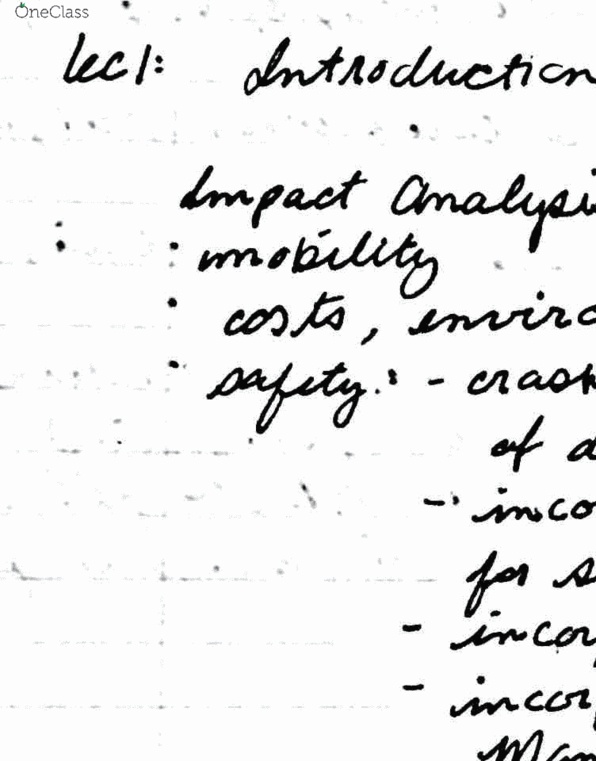 OneClass
Lec 1: Introduction
Impact Analysi
mobility
costs, enviro
safety: - crash
of d
- inco
for s
- incor
- incorp
Man